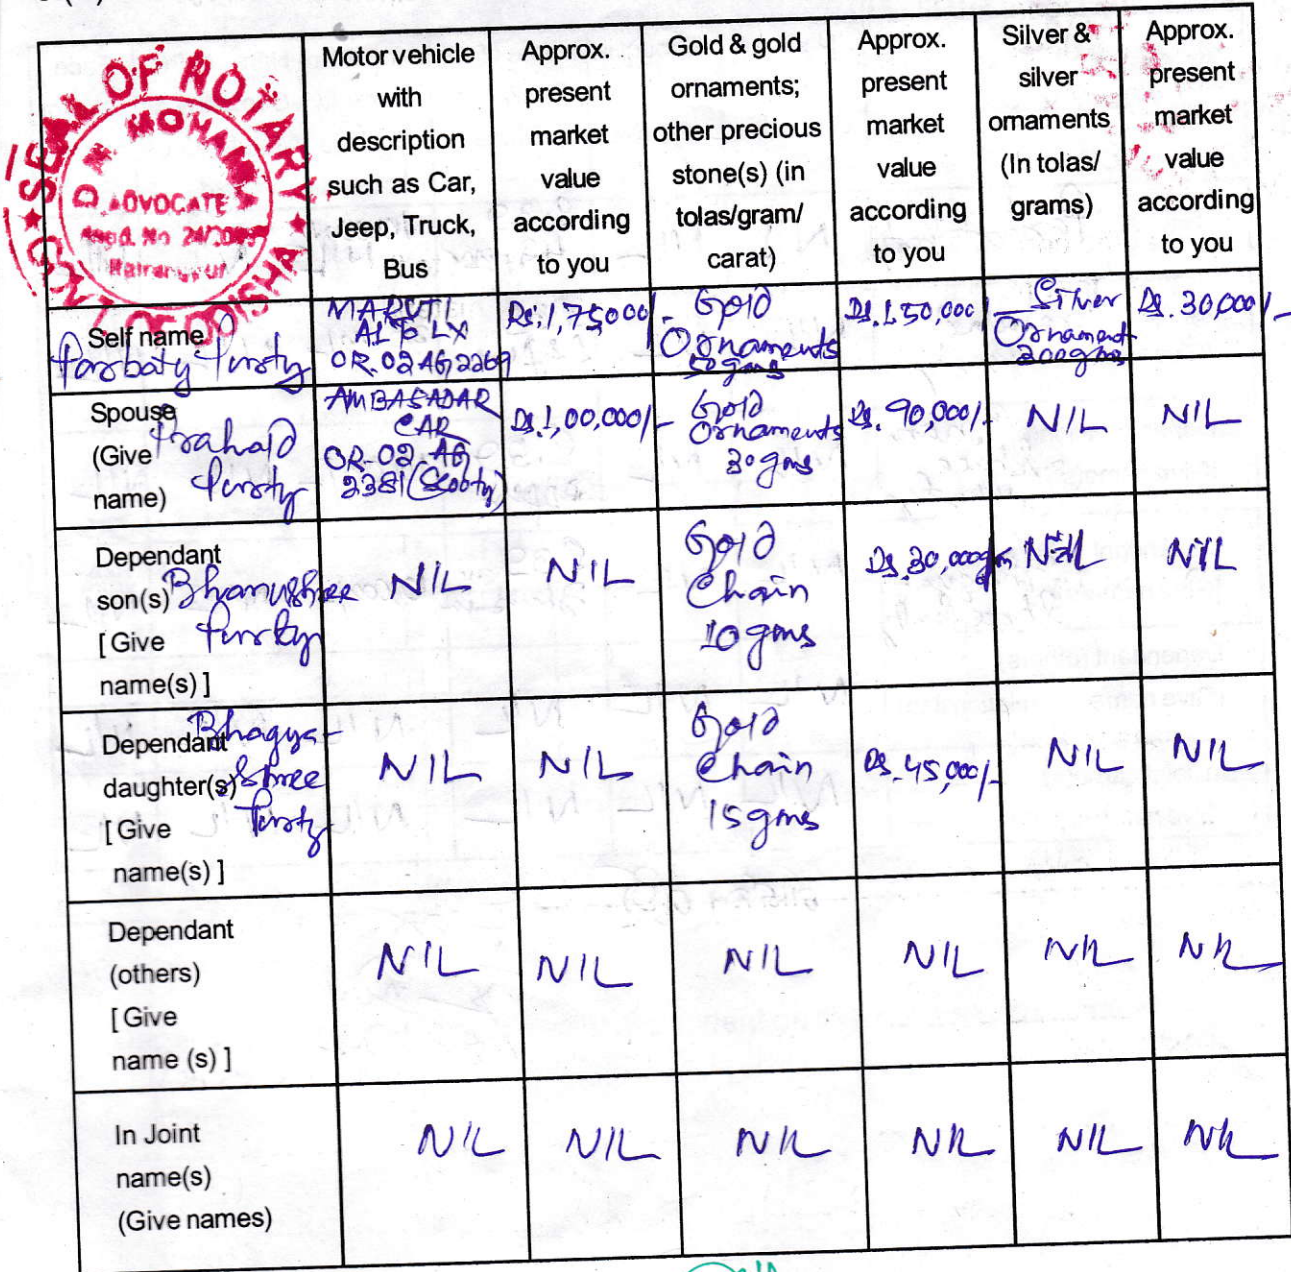 SEAL OF NOTARY
MOHAN
ADVOCATE
Regd. No 24/2009
Rairangpur
ODISHA
Motor vehicle
with
description
such as Car,
Jeep, Truck,
Bus
Approx.
present
market
value
according
to you
Gold & gold
ornaments;
other precious
stone(s) (in
tolas/gram/
carat)
Approx.
present
market
value
according
to you
Silver &
silver
ornaments
(In tolas/
grams)
Approx.
present
market
value
according
to you
Self name
Parbaty Purty
MARUTI
ALTO LX
OR.02 AG 2269
Rs. 1,75000/-
Gold
Ornaments
50 gms
Rs. 1,50,000/-
Silver
Ornament
200 gms
Rs. 30,000/-
Spouse
(Give
name)
Prahald
Purty
AMBASADAR
CAR
OR-02-AG
2381 (Scooty)
Rs. 1,00,000/-
Gold
Ornaments
30 gms
Rs. 90,000/-
NIL
NIL
Dependant
son(s)
[ Give
name(s) ]
Bhanushree
Purty
NIL
NIL
Gold
Chain
10 gms
Rs. 30,000
NIL
NIL
Dependant
daughter(s)
[ Give
name(s) ]
Bhagya-
Shree
Purty
NIL
NIL
Gold
Chain
15 gms
Rs. 45,000/-
NIL
NIL
Dependant
(others)
[ Give
name (s) ]
NIL
NIL
NIL
NIL
NIL
NIL
In Joint
name(s)
(Give names)
NIL
NIL
NIL
NIL
NIL
NIL